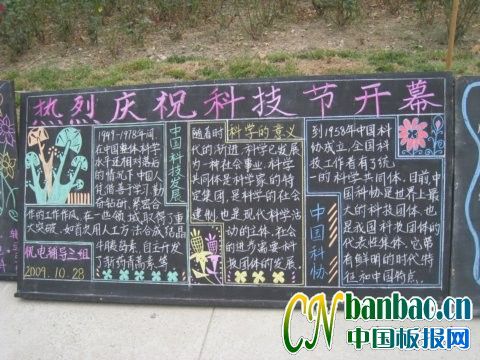 热烈庆祝科技节开幕
1949-1978年间
在中国整体科学
水平还相对落后
的情况下中国人
凭借善于学习,勤
奋钻研,紧密合
作的工作作风,在一些领域取得了重
大突破,如首次用人工方法合成结晶
牛胰岛素,自主研发
了新药青蒿素等
机电辅导三组
2009.10.28
中国科技发展
科学的意义
随着时
代的渐进,科学发展
为一种社会事业,科学
共同体是科学家的特
定集团,是科学的社会
建制,也是现代科学活
动的主体,社会
的进步需要科
技团体的发展
到1958年中国科
协成立,全国科
技工作者有了统
一的科学共同体,目前,中
国科协是世界上最
大的科技团体,也
是我国科技团体的
代表性集体,它带
有鲜明的时代特
征和中国特点.
中国科协
CNbanbao.cn
中国板报网